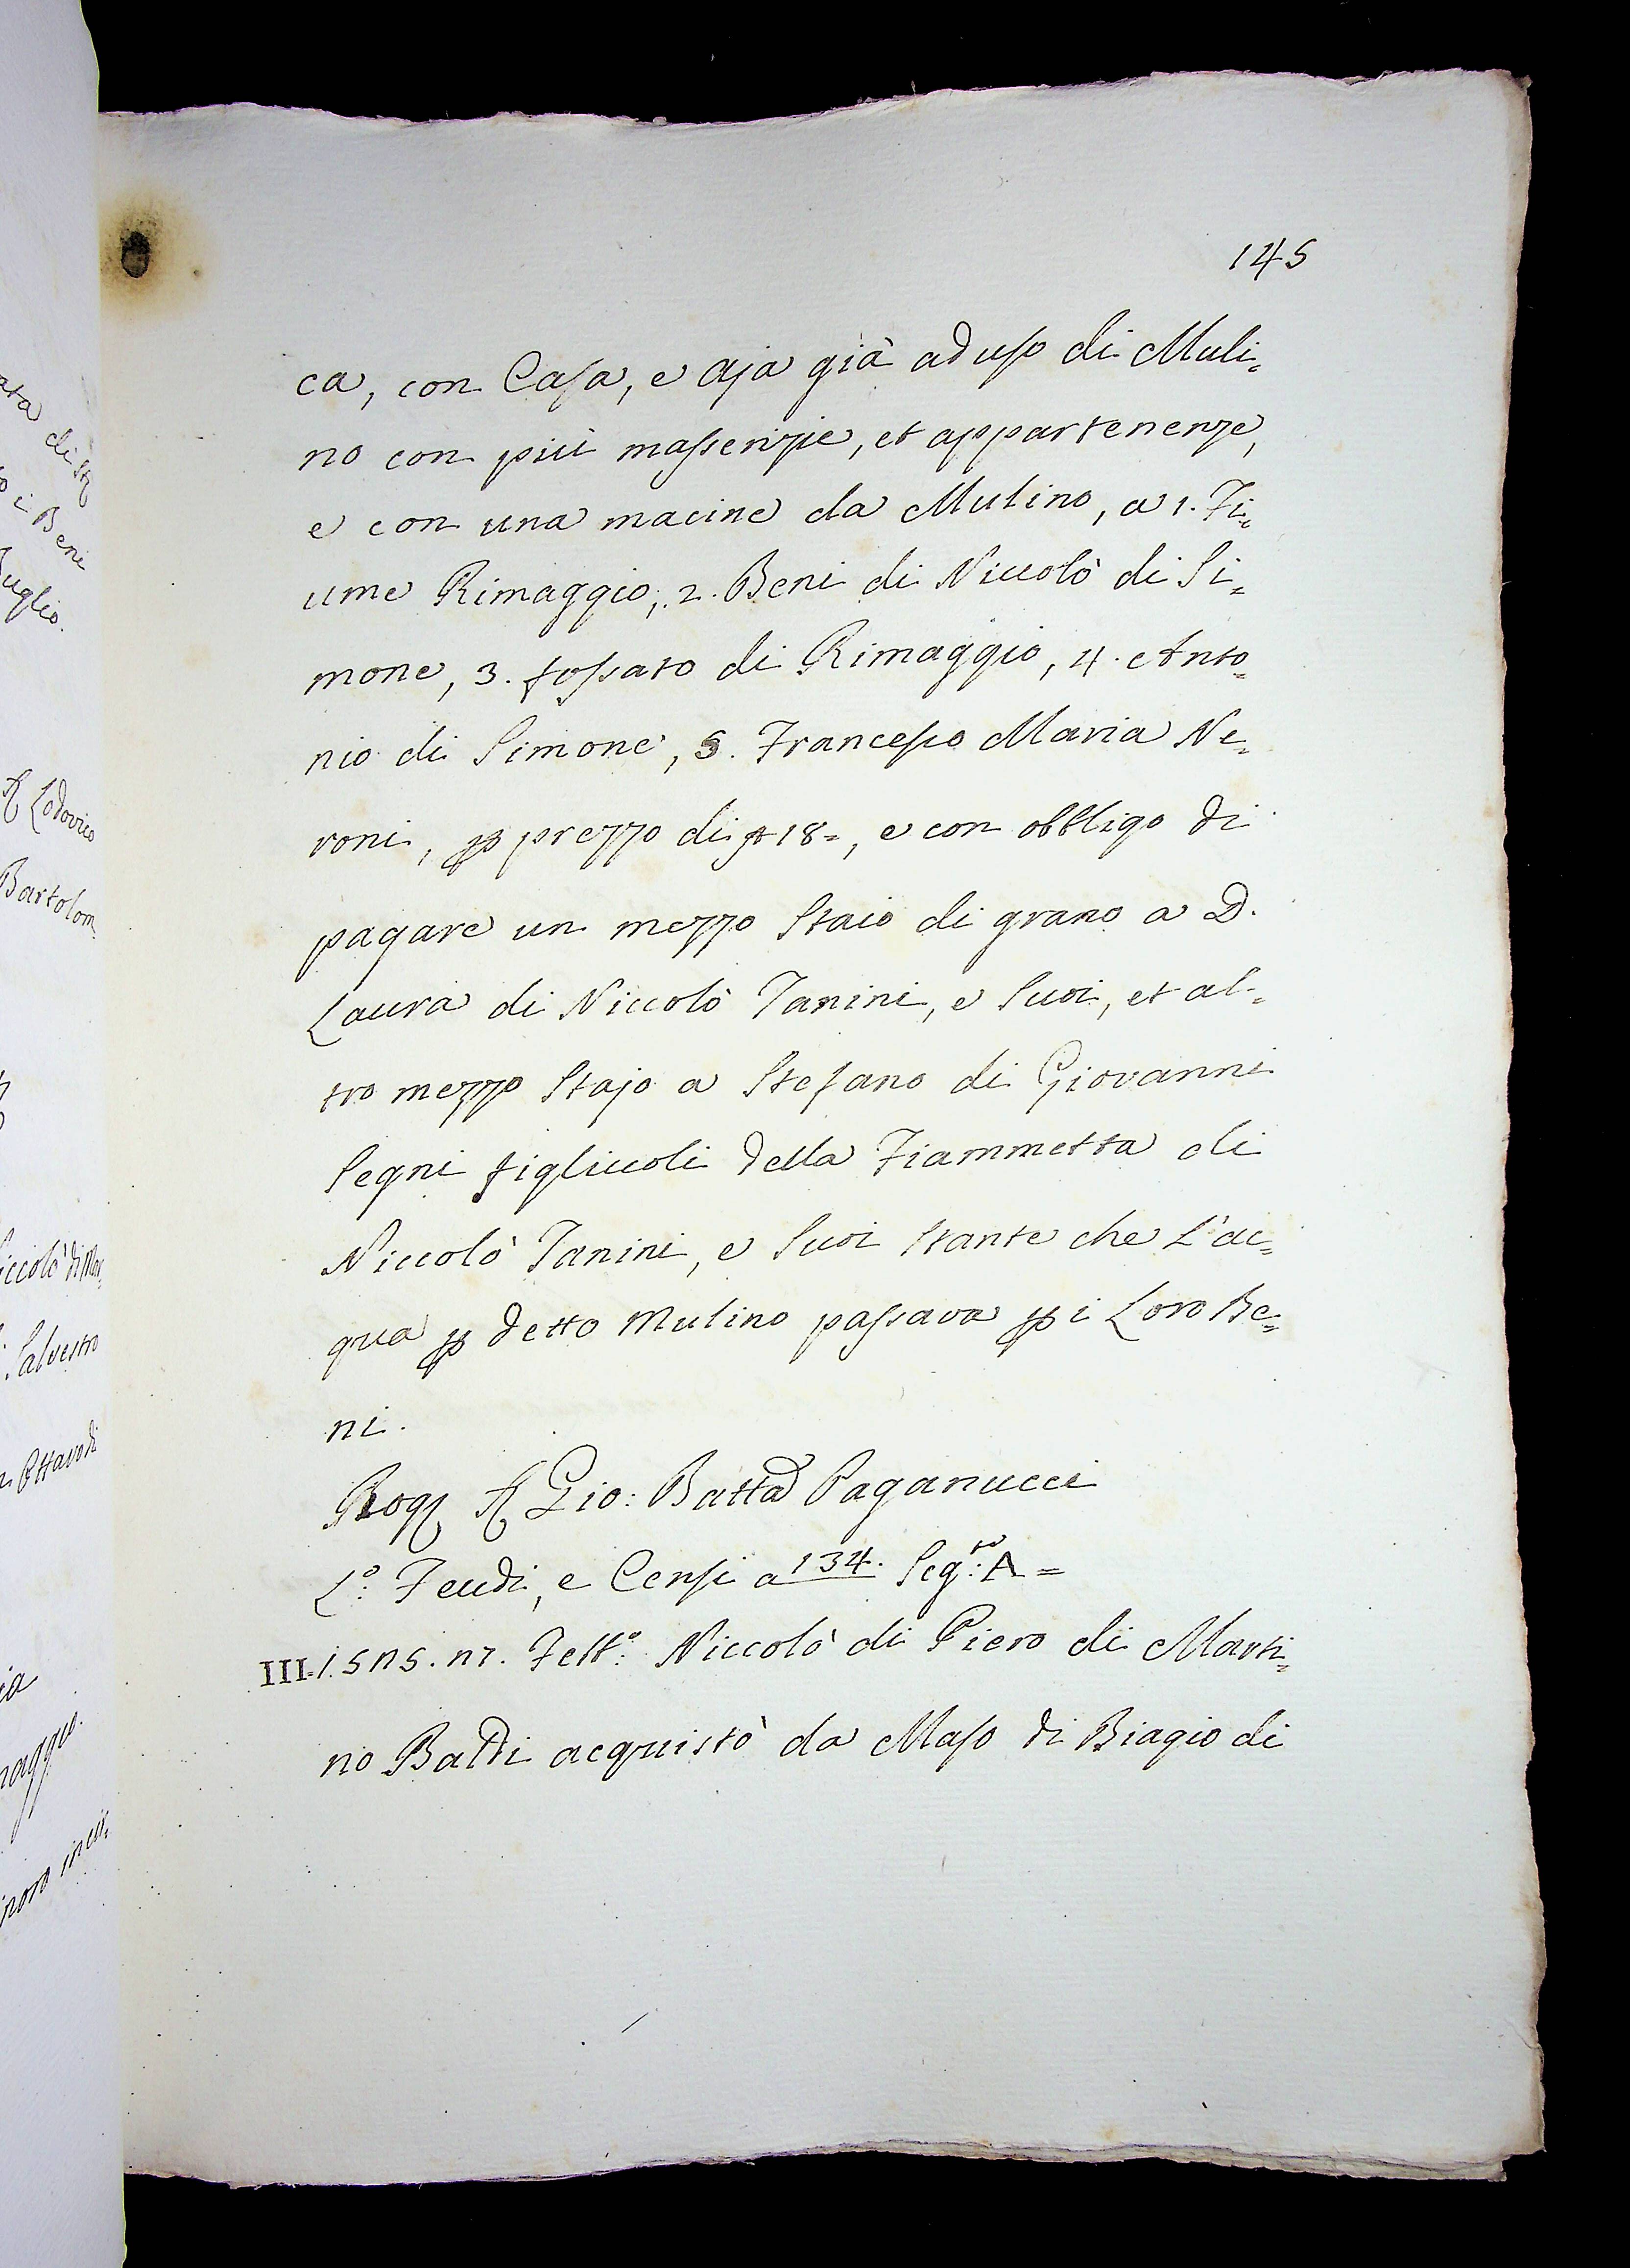 145
ca, con Casa, e Aja già ad uso di Muli=
no con più masserizie, et appartenenze,
e con una macine da Mulino, a 1. Fi=
ume Rimaggio, 2. Beni di Niccolò di Si=
mone, 3. fossato di Rimaggio, 4. Anto=
nio di Simone, 5. Francesco Maria Ne=
roni, p prezzo di 18=, e con obbligo di
pagare un mezzo Staio di grano a D.
Laura di Niccolò Tanini, e Suoi, et al=
tro mezzo Stajo a Stefano di Giovanni
Segni figliuoli della Fiammetta di
Niccolò Tanini, e Suoi stante che L'ac=
qua p detto Mulino passava p i Loro Be=
ni.
Rog Gio: Batta Paganucci
L.º Feudi, e Censi a 134. Seg.to: A=
III. Niccolò di Piero di Marti=
no Baldi acquistò da Maso di Biagio di
Lodovico
Bartolom
Salvestro